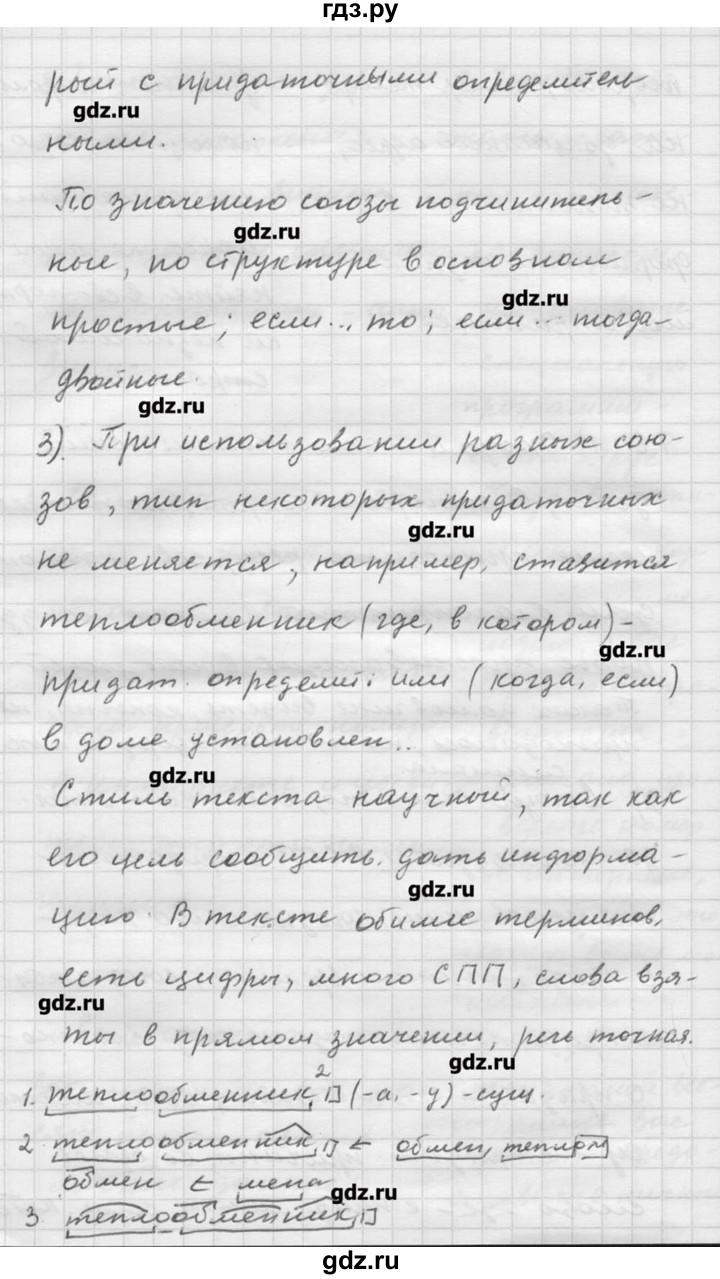 гдз.ру
рый с придаточными определитель
gdz.ru
ными.
По значению союзы подчинитель-
gdz.ru
ные, по структуре в основном
gdz.ru
простые; если... то; если... тогда-
двойные.
gdz.ru
3). При использовании разных сою-
зов, тип некоторых придаточных
gdz.ru
не меняется, например, ставится
теплообменник (где, в котором)-
gdz.ru
придат. определит; или (когда, если)
в доме установлен..
gdz.ru
Стиль текста научный, так как
его цель сообщить. дать информа-
gdz.ru
цию. В тексте обилие терминов,
есть цифры, много СПП, слова взя-
gdz.ru
ты в прямом значении, речь точная.
gdz.ru
1. теплообменник, 2 (-а, -у) - сущ.
2 теплообменник, ← обмен, теплом
обмен ← мена
gdz.ru
3 теплообменник,
gdz.ru